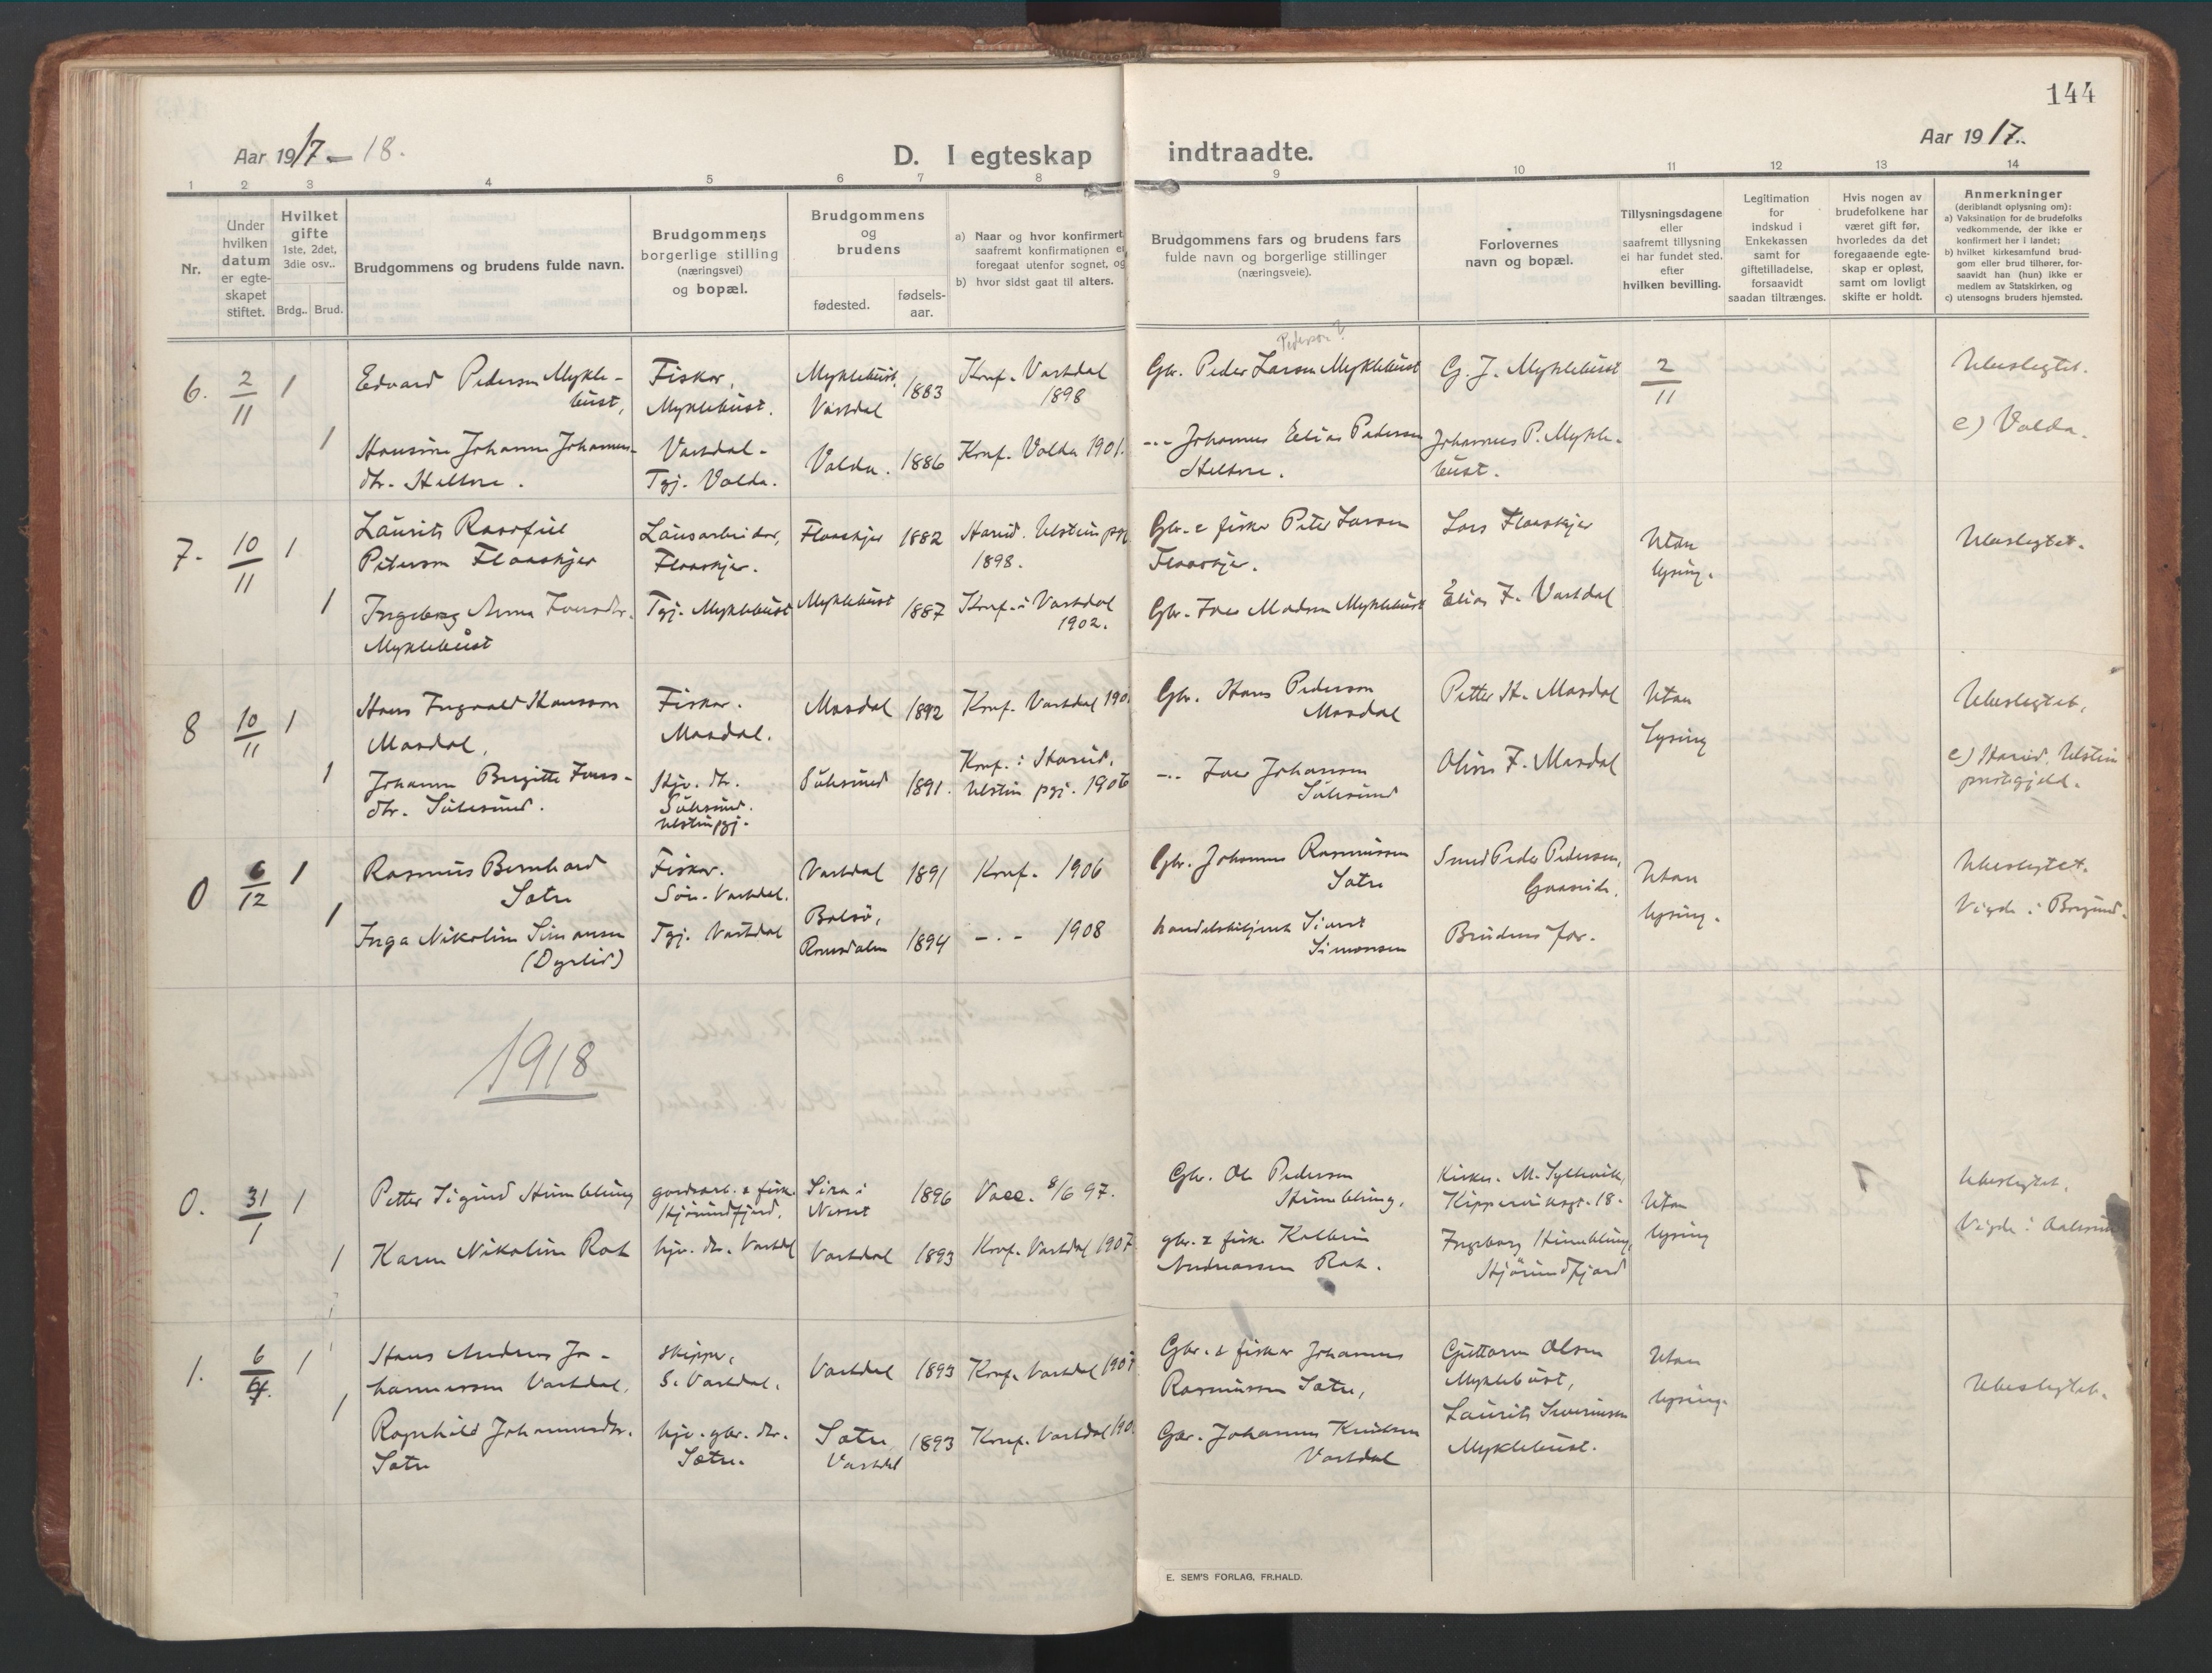 144
Aar 1917 - 18.
D. I egteskap indtraadte.
Aar 1917.
1 2 3 4 5 6 7 8 9 10 11 12 13 14
Nr.
Under
hvilken
datum
er egte-
skapet
stiftet.
Hvilket
gifte
1ste, 2det,
3die osv..
Brdg.. Brud.
Brudgommens og brudens fulde navn.
Brudgommens
borgerlige stilling
(næringsvei)
og bopæl.
Brudgommens
og
brudens
fødested.
fødsels-
aar.
a) Naar og hvor konfirmert,
saafremt konfirmationen ei
foregaat utenfor sognet, og
b) hvor sidst gaat til alters.
Brudgommens fars og brudens fars
fulde navn og borgerlige stillinger
(næringsveie).
Forlovernes
navn og bopæl.
Tillysningsdagene
eller
saafremt tillysning
ei har fundet sted.
efter
hvilken bevilling.
Legitimation
for
indskud i
Enkekassen
samt for
giftetilladelse,
forsaavidt
saadan tiltrænges.
Hvis nogen av
brudefolkene har
været gift før,
hvorledes da det
foregaaende egte-
skap er opløst,
samt om lovligt
skifte er holdt.
Anmerkninger
(deriblandt oplysning om):
a) Vaksination for de brudefolks
vedkommende, der ikke er
konfirmert her i landet;
b) hvilket kirkesamfund brud-
gom eller brud tilhører, for-
saavidt han (hun) ikke er
medlem av Statskirken, og
c) utensogns bruders hjemsted.
6. 2/11 1
Edvard Pedersen Mykle-
bust,
Fiskar,
Myklebust.
Myklebust,
Vartdal
1883
Konf. Vartdal
1898
Pederson?
Gbr. Peder Larsen Myklebust
G. J. Myklebust
2/11
Ubeslegtet.
1
Hansine Johanne Johannes-
dtr. Heltne.
Vartdal -
Tgj. Volda.
Volda. 1886
Konf. Volda 1901.
-·- Johannes Elias Pedersen
Heltne.
Johannes P. Mykle-
bust.
c) Volda.
7. 10/11 1
Laurits
Petersen Flaaskjer
Lausarbeidar,
Flaaskjer.
Flaaskjer 1882
Hareid. Ulstein pgj
1898.
Gbr. & fisker Peter Larsen
Flaaskjer.
Lars Flaaskjer
Utan
lysing.
Ubeslegtet.
1
Ingeborg Anna Jonsdtr.
Myklebust
Tgj. Myklebust
Myklebust 1887
Konf. i Vartdal
1902.
Gbr. Jon Madsen Myklebust
Elias F. Vartdal
8 10/11 1
Hans Ingvald Hansson
Masdal.
Fiskar.
Masdal.
Masdal 1892
Konf. Vartdal 190
Gbr. Hans Pederson
Masdal
Petter H. Masdal
Utan
Lysing
Ubeslegtet.
1
Johanne Birgitte Jons-
dtr. Sulesund.
Hjv. dtr.
Sulesund.
Ulstein pgj.
Sulesund 1891.
Konf. i Hareid,
Ulstein pgj. 1906
-·- Jon Johansen
Sulesund
Oluf F. Masdal
c) Hareid, Ulstein
prestegjeld.
0 6/12 1
Rasmus Bernhard
Sætre
Fiskar.
Søre-Vartdal.
Vartdal 1891
Konf. 1906
Gbr. Johannes Rasmussen
Sætre
Smed Peder Pedersen,
Gaaseide.
Utan
lysing.
Ubeslegtet.
Vigde i Borgund.
1
Inga Nikoline Simonsen
(Dyrlid)
Tgj. Vartdal
Bolsø,
Romsdalen
1894
-·- 1908
handelsbetjent Sivert
Simonsen
Brudens far.
1918
0. 31/1 1
Petter Sigurd Humblung
gardsarb. & fisk.
Hjørundfjord.
Sira i
Nesset
1896
Vacc. 8/6 97.
Gbr. Ole Pedersen
Humblung.
Kirkes. M. Syltevik,
Kipperviksgt. 18.
Utan
lysing
Ubeslegtet.
Vigde i Aalesund
1
Karen Nikoline Rot
hjv. dtr. Vartdal
Vartdal 1893
Konf. Vartdal 1907
gbr. & fisker Kolbein
Andreassen Rot.
Ingeborg Humblung,
Hjørundfjord
1. 6/4. 1
Hans Andreas Jo-
hannessen Vartdal.
Skipper,
S. Vartdal.
Vartdal 1893
Konf. Vartdal 1907
Gbr. & fisker Johannes
Rasmussen Sætre,
Guttorm Olsen
Myklebust,
Utan
lysing.
Ubeslegtet.
1
Ragnhild Johannesdtr.
Sætre
hjv. gbr. dtr.
Sætre.
Sætre
Vartdal
1893
Konf. Vartdal 190
Gbr. Johannes Knutsen
Vartdal
Laurits Severinsen
Myklebust.
E. SEM'S FORLAG, FR.HALD.